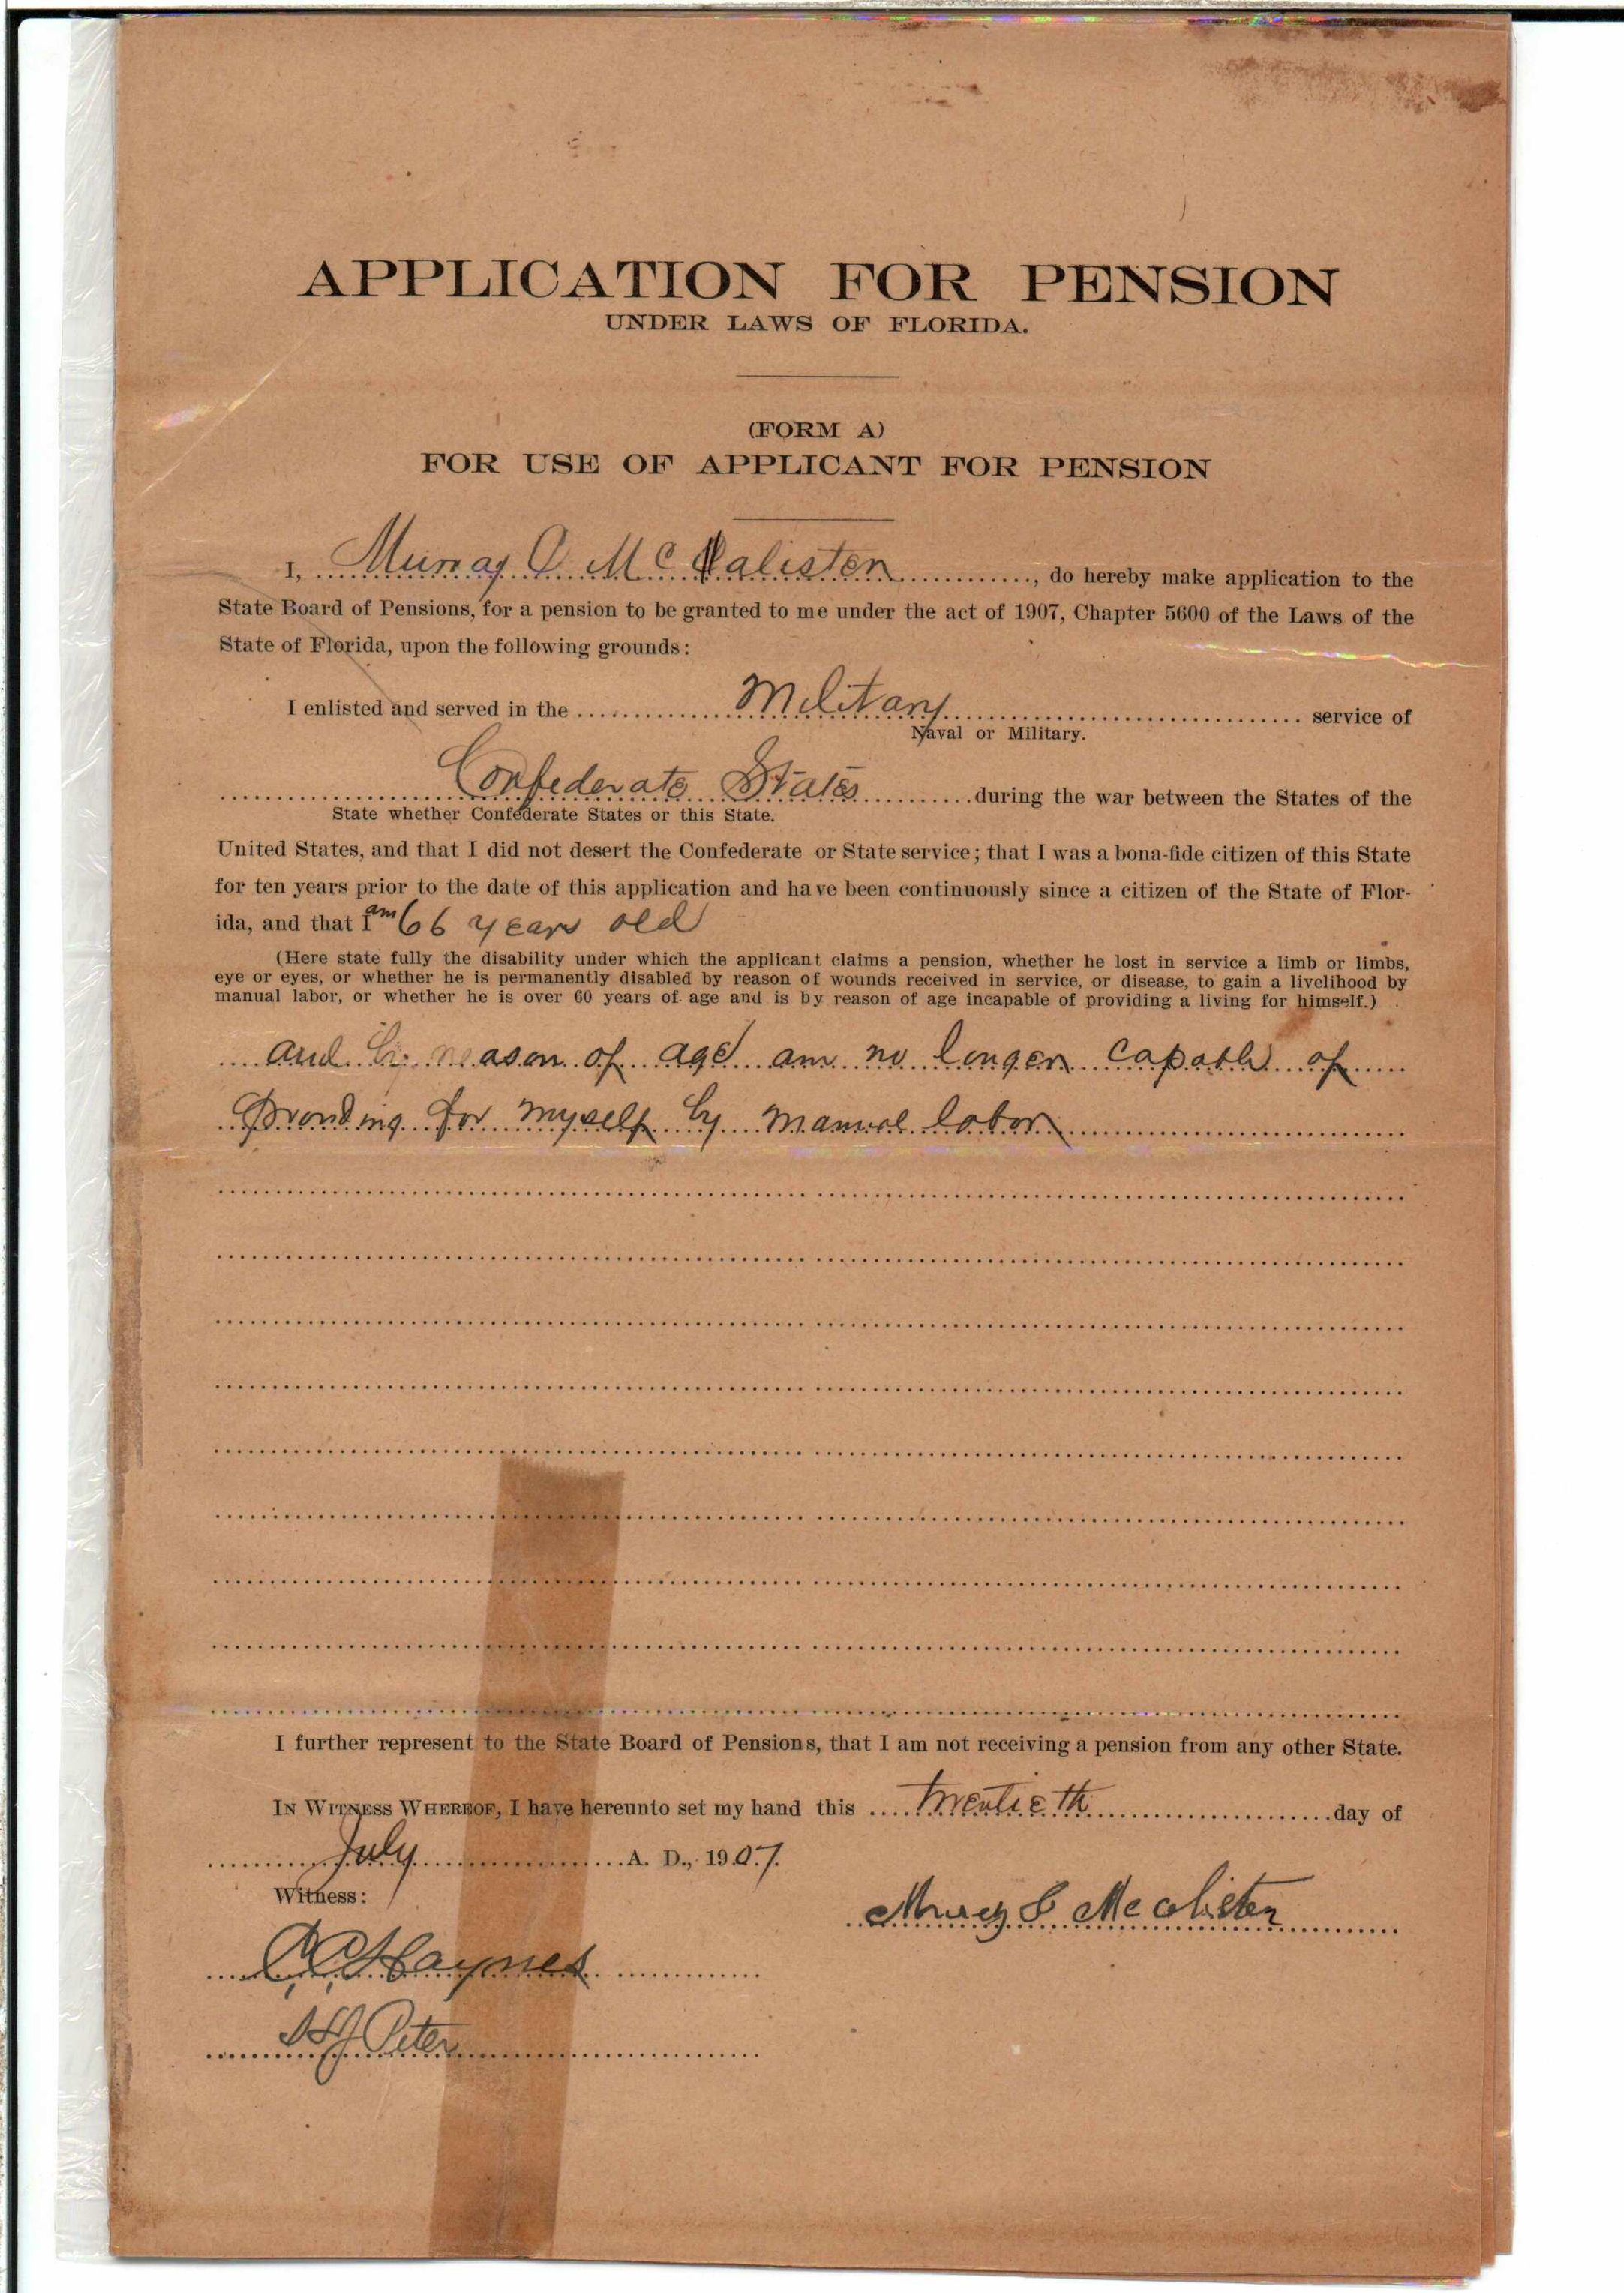 APPLICATION FOR PENSION
UNDER LAWS OF FLORIDA.
(FORM A)
FOR USE OF APPLICANT FOR PENSION
I, Murray Mc alister, do hereby make application to the
State Board of Pensions, for a pension to be granted to me under the act of 1907, Chapter 5600 of the Laws of the
State of Florida, upon the following grounds:
I enlisted and served in the Military service of
Naval or Military.
Confederate States during the war between the States of the
State whether Confederate States or this State.
United States, and that I did not desert the Confederate or State service; that I was a bona-fide citizen of this State
for ten years prior to the date of this application and have been continuously since a citizen of the State of Flor-
ida, and that I am 66 years old
(Here state fully the disability under which the applicant claims a pension, whether he lost in service a limb or limbs,
eye or eyes, or whether he is permanently disabled by reason of wounds received in service, or disease, to gain a livelihood by
manual labor, or whether he is over 60 years of age and is by reason of age incapable of providing a living for himself.)
and by reason of age am no longer capable of
providing for myself by manual labor
I further represent to the State Board of Pensions, that I am not receiving a pension from any other State.
IN WITNESS WHEREOF, I have hereunto set my hand this twentieth day of
July A. D., 1907.
Witness:
Mcalister
Haynes
Peter